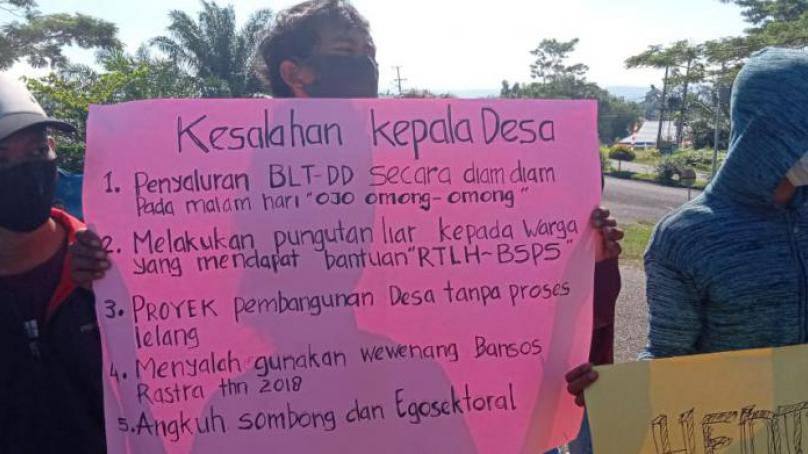 Kesalahan kepala Desa
1. Penyaluran BLT-DD Secara diam diam
Pada malam hari "OJO omong-omong"
2. Melakukan pungutan liar kepada Warga
yang mendapat bantuan "RTLH-BSPS"
3. PROYEK pembangunan Desa tanpa proses
lelang
4. Menyalah gunakan wewenang Bansos
Rastra thn 2018
5. Angkuh sombong dan Egosektoral